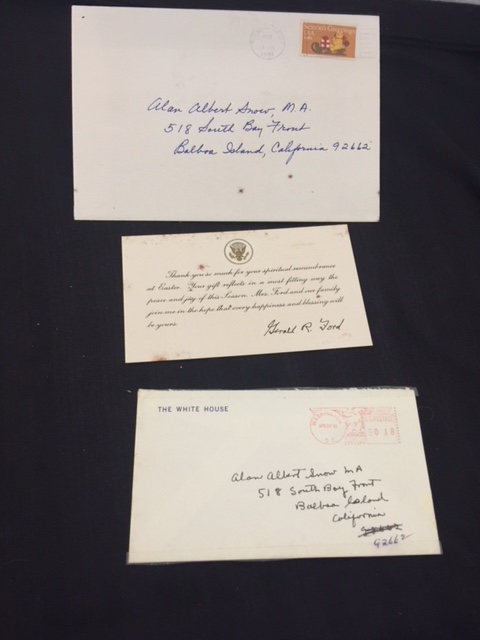 Alan Albert Snow, M.A.
518 South Bay Front
Balboa Island, California 92662
Thank you so much for your spiritual remembrance
at Easter. Your gift reflects in a most fitting way the
peace and joy of this Season. Mrs. Ford and our family
join me in the hope that every happiness and blessing will
be yours.
Gerald R. Ford
THE WHITE HOUSE
Alan Albert Snow MA
518 South Bay Front
Balboa Island
California
92662